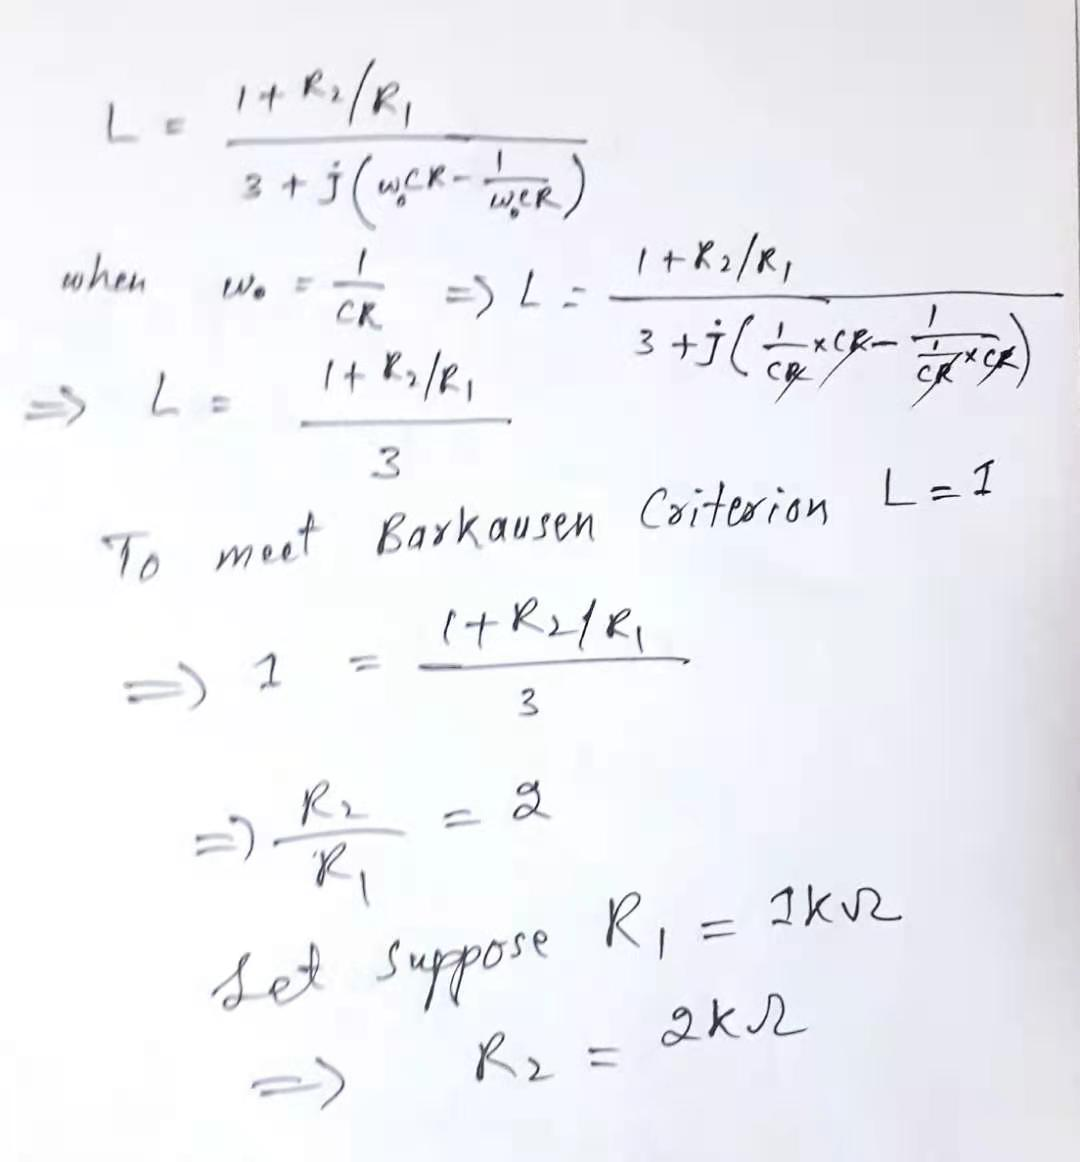 L = (1 + R₂/R₁) / (3 + j(ω₀CR − 1/(ω₀CR)))
when ω₀ = 1/CR ⇒ L = (1 + R₂/R₁) / (3 + j(1/CR × CR − 1/(1/CR × CR)))
⇒ L = (1 + R₂/R₁) / 3
To meet Barkausen Criterion L = 1
⇒ 1 = (1 + R₂/R₁) / 3
⇒ R₂/R₁ = 2
Let suppose R₁ = 1kΩ
⇒ R₂ = 2kΩ